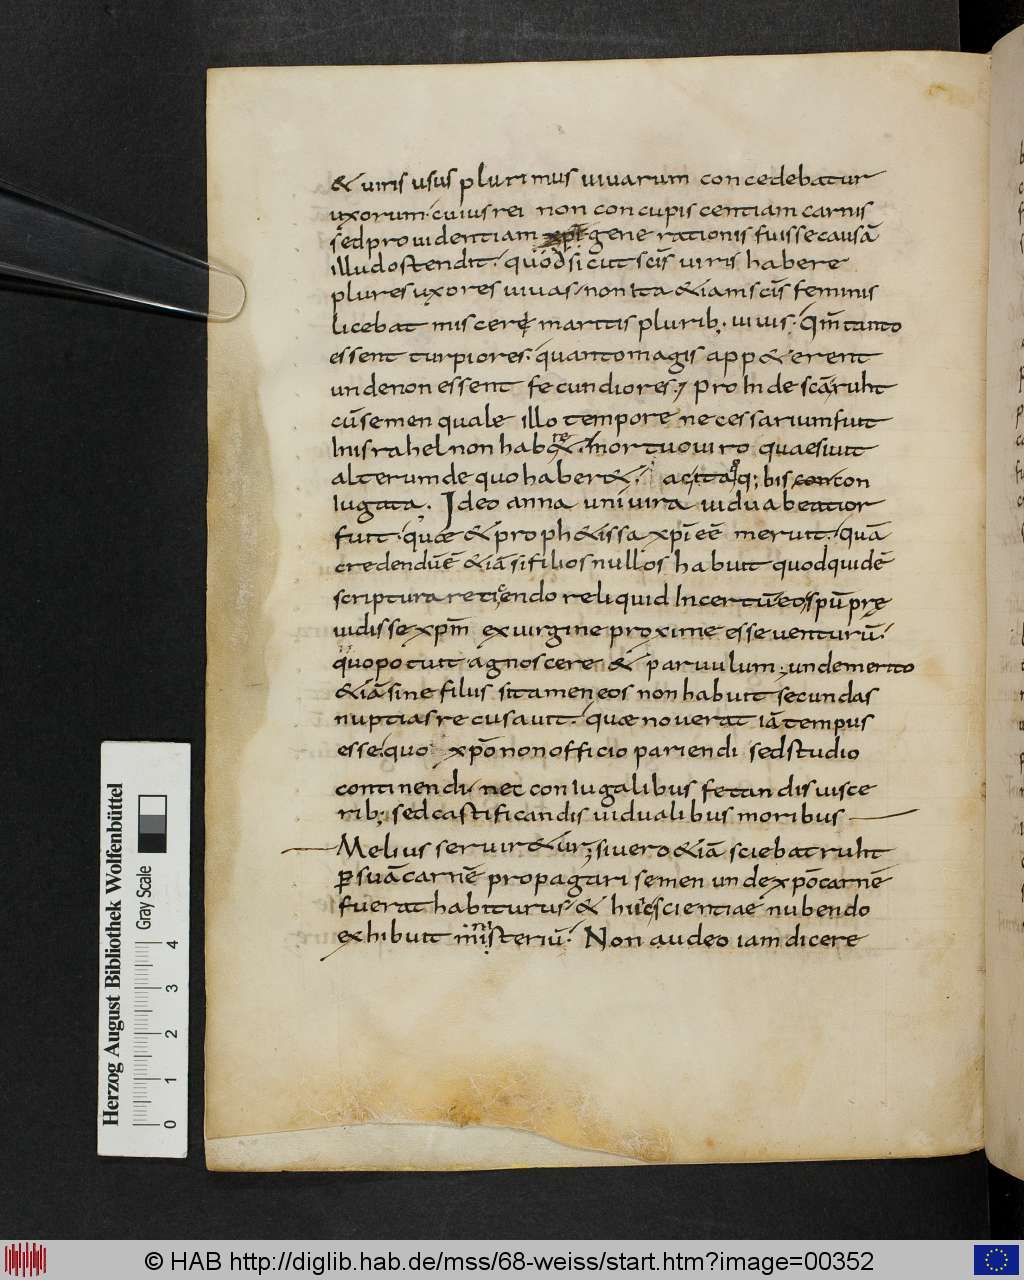 & uiris usus plurimus uiuarum concedebatur
uxorum. cuius rei non concupiscentiam carnis
sed prouidentiam generationis fuisse causā
illud ostendit. quod sicut scīs uiris habere
plures uxores uiuas, non ita &iam scīs feminis
licebat miscerę maritis plurib; uiuis. Qm̄ tanto
essent turpiores. quanto magis app&erent
unde non essent fecundiores; Proinde scā ruht
cū semen quale illo tempore necessarium fuit
In israhel non hab&re. mortuo uiro quaesiuit
alterum de quo haber&. ac ita q; bis con
iugata. Ideo anna uniuira uidua beatior
fuit. quae & proph&issa xpī eē meruit. quā
credendū ē &iā si filios nullos habuit quod quidē
scriptura reticendo reliquid Incertū. eo spū pre
uidisse xpm̄ ex uirgine proxime esse uenturū.
quo potuit agnoscere & paruulum. unde merito
&iā sine filiis si tamen eos non habuit secundas
nuptias recusauit. quae nouerat iā tempus
esse. quo xpō non officio pariendi sed studio
continendi. nec coniugalibus fetandis uisce
rib; sed castificandis uidualibus moribus
Melius seruir&ur; si uero &iā sciebat ruht
ꝑ suā carnē propagari semen unde xpō carnē
fuerat habiturus, & huic scientiae nubendo
exhibuit ministeriū. Non audeo iam dicere
Herzog August Bibliothek Wolfenbüttel
Gray Scale
0 1 2 3 4
© HAB http://diglib.hab.de/mss/68-weiss/start.htm?image=00352